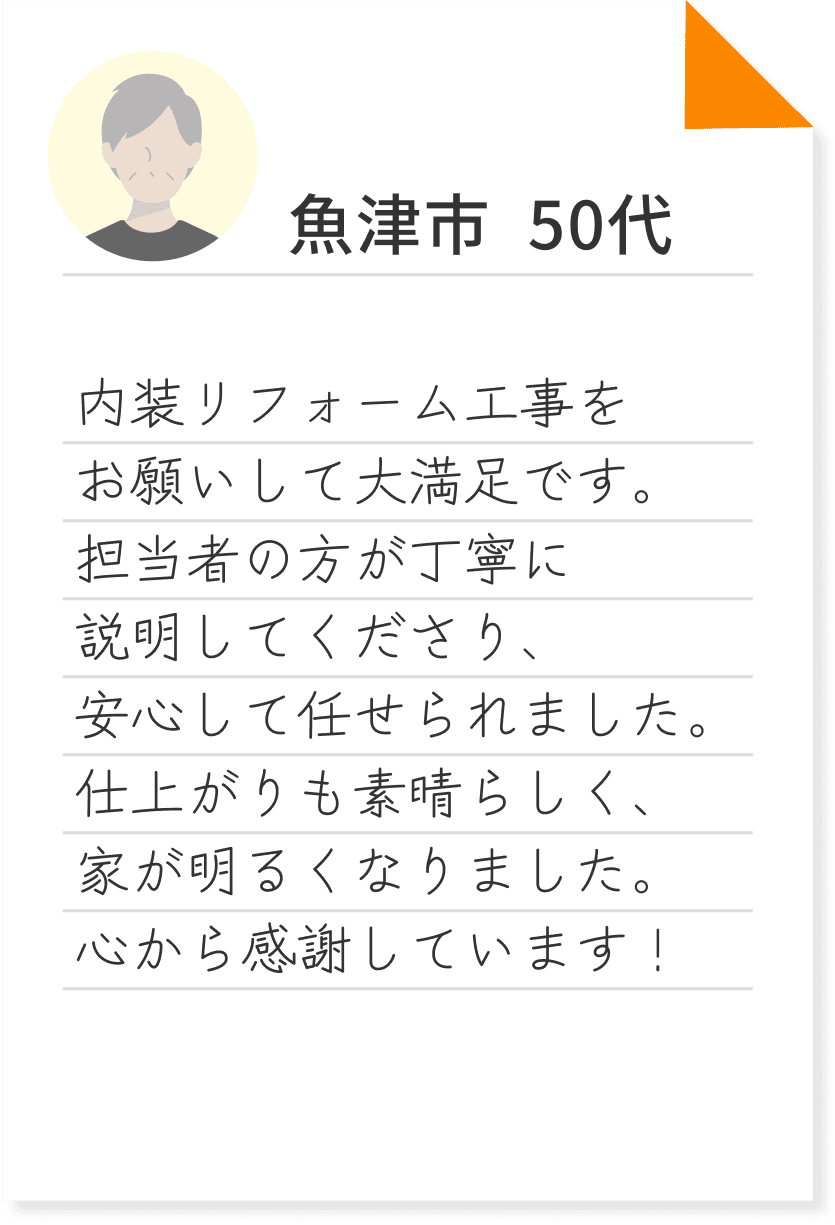 魚津市 50代
内装リフォーム工事を
お願いして大満足です。
担当者の方が丁寧に
説明してくださり、
安心して任せられました。
仕上がりも素晴らしく、
家が明るくなりました。
心から感謝しています！